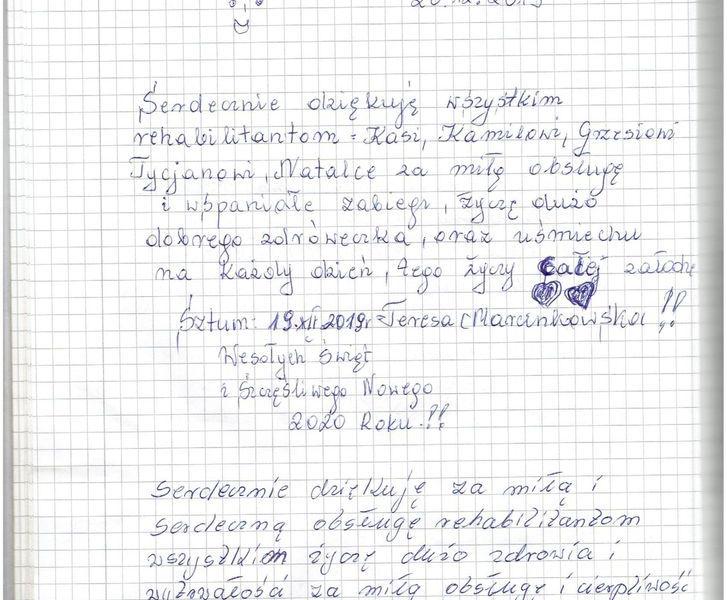 20.12.2019
Serdecznie dziękuję wszystkim
rehabilitantom - Kasi, Kamilowi, Grzesiowi
Tycjanowi, Natalce za miłą obsługę
i wspaniałe zabiegi, życzę dużo
dobrego zdróweczka, oraz uśmiechu
na każdy dzień, tego życzy całej załodze
Sztum: 19.XII.2019r Teresa Marcinkowska !!
Wesołych Świąt
i Szczęśliwego Nowego
2020 Roku.!!
Serdecznie dziękuję za miłą i
serdeczną obsługę rehabilitantom
wszystkim życzę dużo zdrowia i
wytrwałości za miłą obsługę i cierpliwość